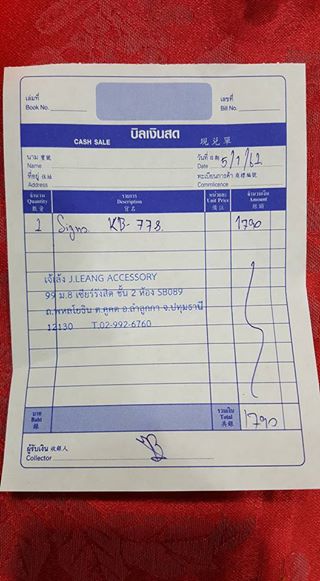 เล่มที่ เลขที่
Book No. Bill No.
บิลเงินสด
CASH SALE 現兌單
นาม 寶號 วันที่ 日期 5/1/62
Name Date
ที่อยู่ 住址 ทะเบียนการค้า 商標編號
Address Commicence
จำนวน รายการ หน่วยละ จำนวนเงิน
Quantity Description Unit Price Amount
數量 貨名 備註 銀額
1 Signo KB-778 1790
เจ้เล้ง J.LEANG ACCESSORY
99 ม.8 เซียร์รังสิต ชั้น 2 ห้อง SB089
ถ.พหลโยธิน ต.คูคต อ.ลำลูกกา จ.ปทุมธานี
12130 T.02-992-6760
บาท รวมเงิน
Baht Total 1790
銀 共銀
ผู้รับเงิน 收銀人
Collector